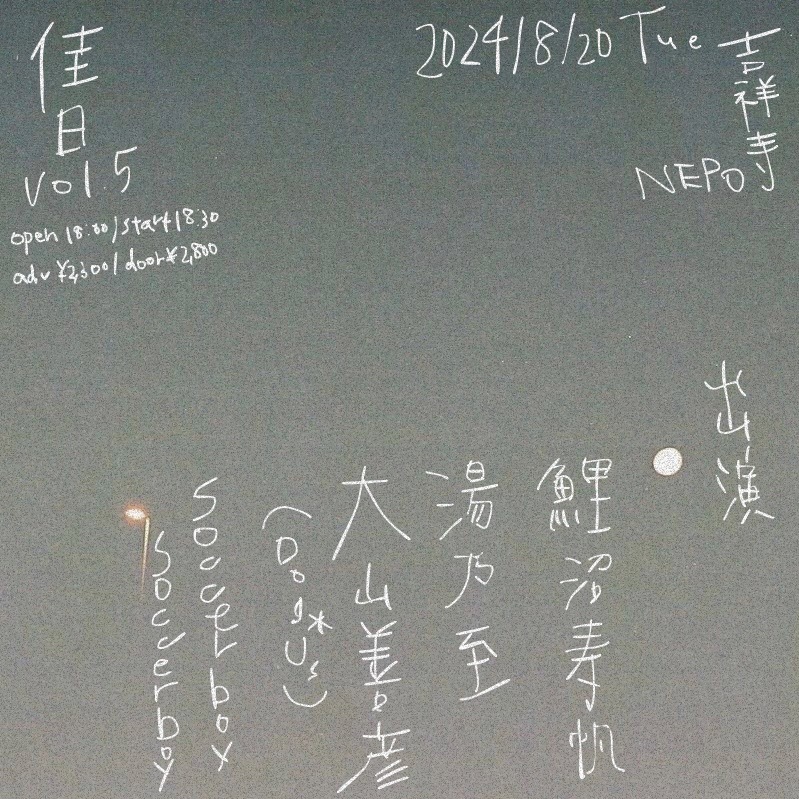 佳日
vol.5
open 18:00/start 18:30
adv ¥2,300/door ¥2,800
2024/8/20 Tue
吉祥寺
NEPO
出演
鯉沼寿帆
湯乃至
大山善彦
(Dog*Us)
soccer box
soccerboy